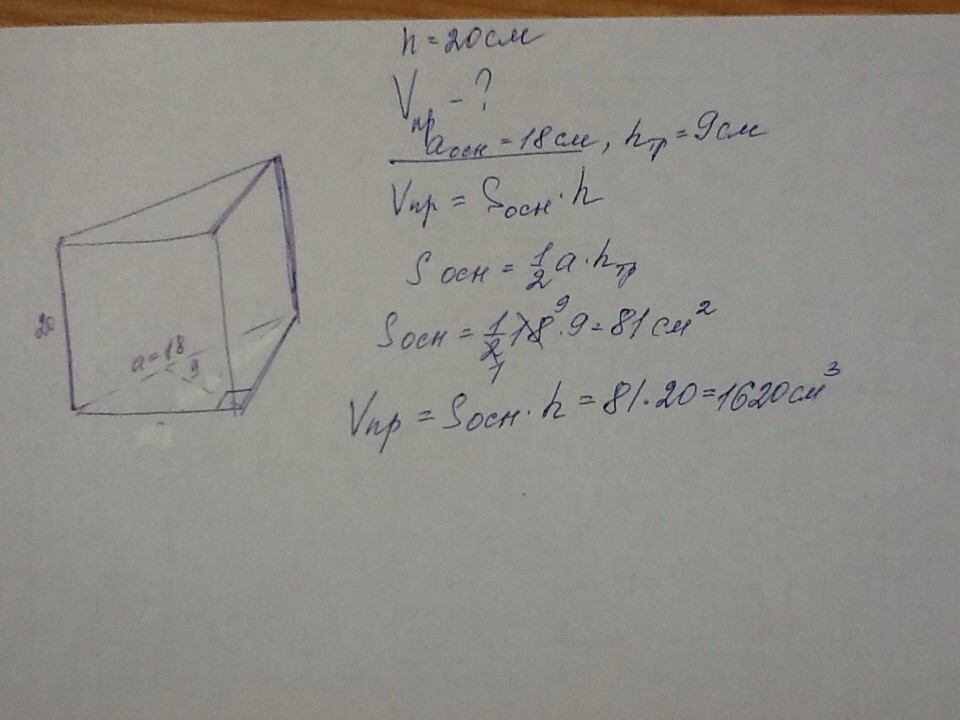 h = 20 см
Vпр - ?
aосн = 18 см, hтр = 9 см
Vпр = Sосн · h
Sосн = 1/2 a · hтр
Sосн = 1/2 18 9 · 9 = 81 см²
1
Vпр = Sосн · h = 81 · 20 = 1620 см³
20
a = 18
9